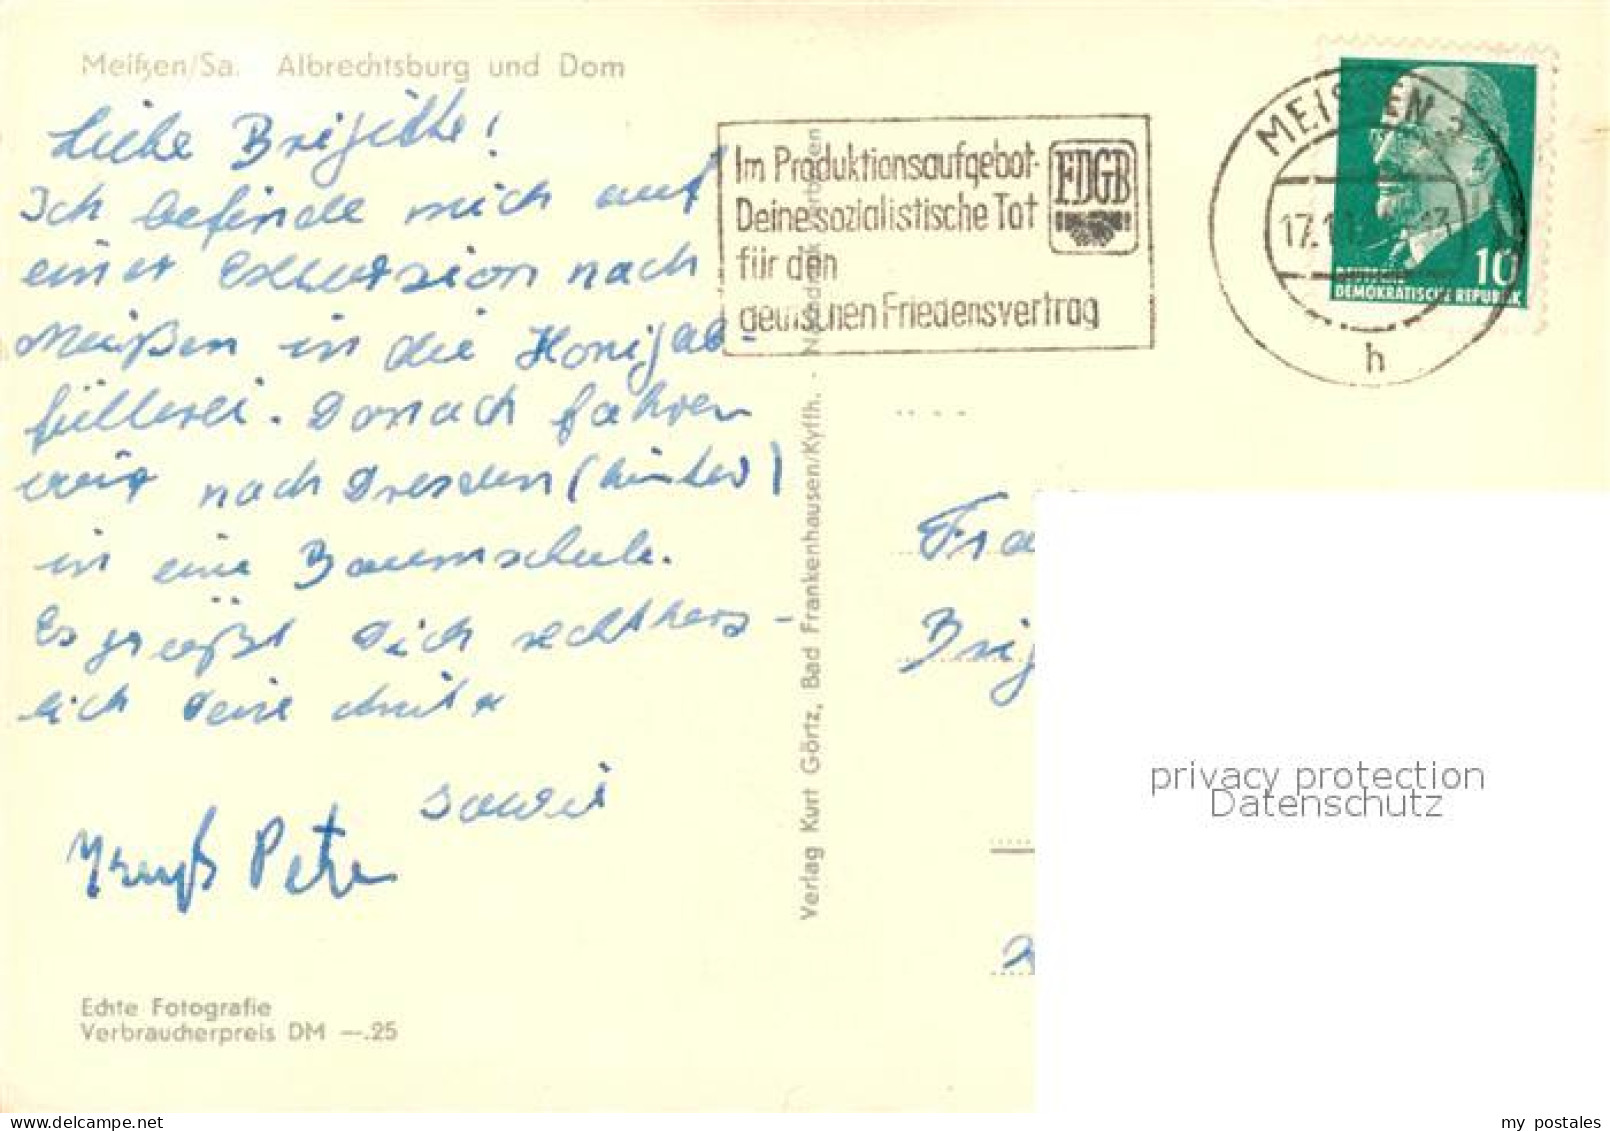 Meißen/Sa. Albrechtsburg und Dom
Liebe Brigitte!
Ich befinde mich auf
einer Exkursion nach
Meißen in die Honigab-
füllerei. Danach fahren
wir nach Dresden (hinter)
in eine Baumschule.
Es grüßt Dich rechtherz-
lich Deine
sowie
Peter
Echte Fotografie
Verbraucherpreis DM —.25
Verlag Kurt Görtz, Bad Frankenhausen/Kyffh. -
Im Produktionsaufgebot-
Deine sozialistische Tat
für den
deutschen Friedensvertrag
FDGB
MEISSEN
17.1
h
10
DEUTSCHE
DEMOKRATISCHE REPUBLIK
Fra
Brig
privacy protection
Datenschutz
my postales